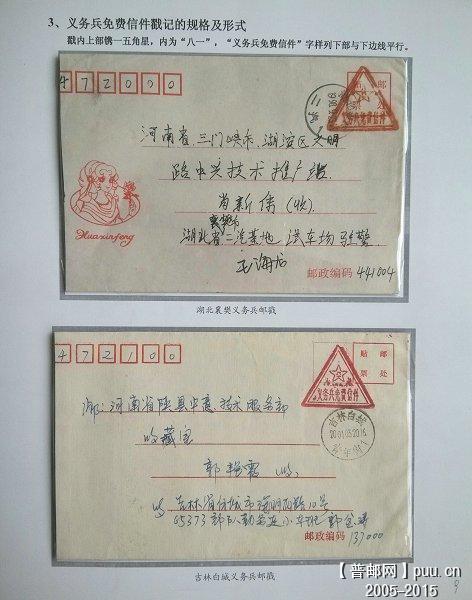 3、义务兵免费信件戳记的规格及形式
戳内上部镌一五角星，内为“八一”，“义务兵免费信件”字样列下部与下边线平行。
472000
贴 邮
票 处
义务兵免费信件
河南省三门峡市湖滨区文明
路中兴技术推广站
肖新伟(收)
湖北省二汽基地汽车场驻警
王海龙
Huaxinfeng
邮政编码 441004
湖北襄樊义务兵邮戳
472100
贴 邮
票 处
义务兵免费信件
吉林白城
河南省陕县中意技术服务部
收藏室
郭艳霞
吉林省白城市海明西路10号
65373部队勤务连小车班
邮政编码 137000
吉林白城义务兵邮戳
【普邮网】puu.cn
2005-2015